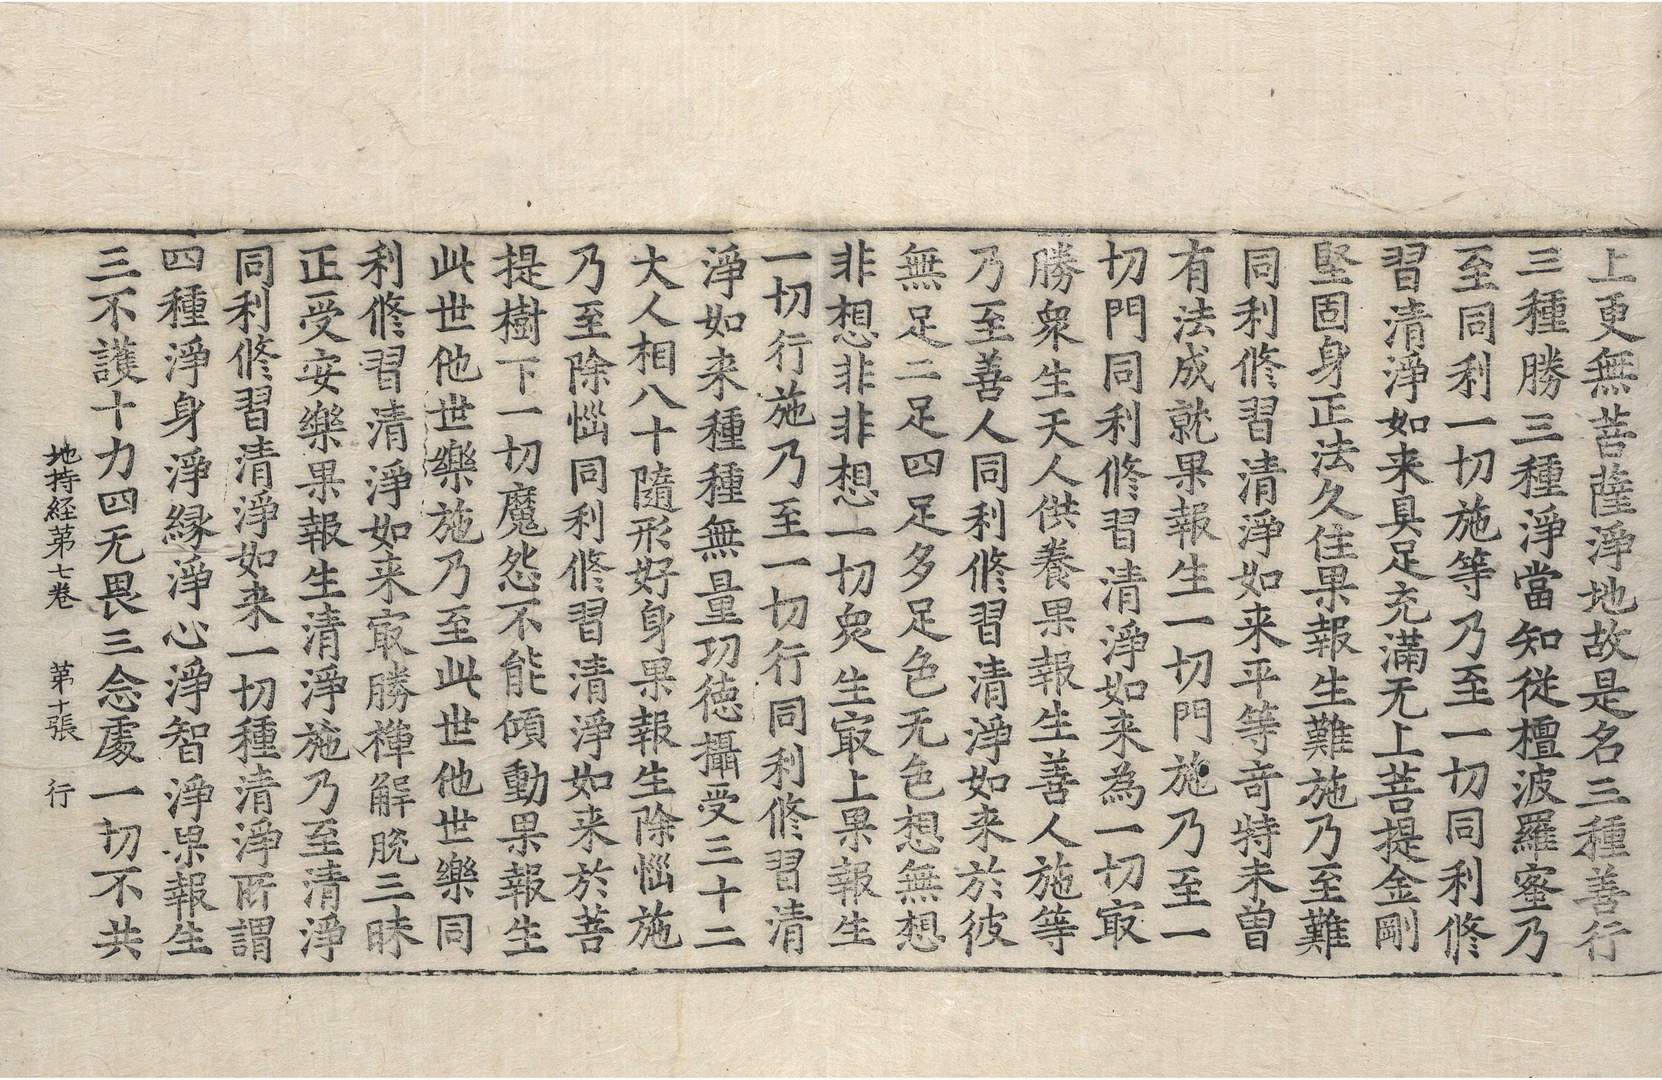 上更無菩薩淨地故是名三種善行
三種勝三種淨當知從檀波羅蜜乃
至同利一切施等乃至一切同利修
習清淨如来具足充滿无上菩提金剛
堅固身正法久住果報生難施乃至難
同利修習清淨如来平等竒特未曽
有法成就果報生一切門施乃至一
切門同利修習清淨如来為一切㝡
勝衆生天人供養果報生善人施等
乃至善人同利修習清淨如来於彼
無足二足四足多足色无色想無想
非想非非想一切衆生㝡上果報生
一切行施乃至一切行同利修習清
淨如来種種無量功徳攝受三十二
大人相八十隨形好身果報生除惱施
乃至除惱同利修習清淨如来於菩
提樹下一切魔怨不能傾動果報生
此世他世樂施乃至此世他世樂同
利修習清淨如来㝡勝禪解脫三昧
正受安樂果報生清淨施乃至清淨
同利修習清淨如来一切種清淨所謂
四種淨身淨縁淨心淨智淨果報生
三不護十力四无畏三念處一切不共
地持経第七卷 第十張 行